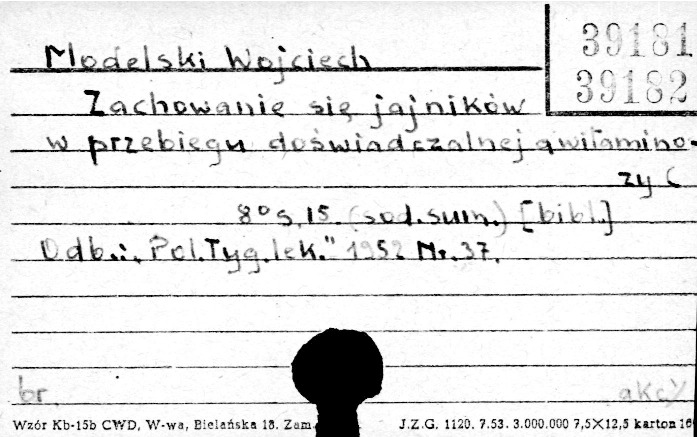 39181
39182
Modelski Wojciech
Zachowanie się jajników
w przebiegu doświadczalnej awitamino-
zy C
8° s. 15. (sod. sum.) [bibl.]
Odb.: "Pol. Tyg. lek." 1952 Nr. 37.
br. akc
Wzór Kb-15b CWD, W-wa, Bielańska 18. Zam. J.Z.G. 1120. 7.53. 3.000.000 7,5×12,5 karton